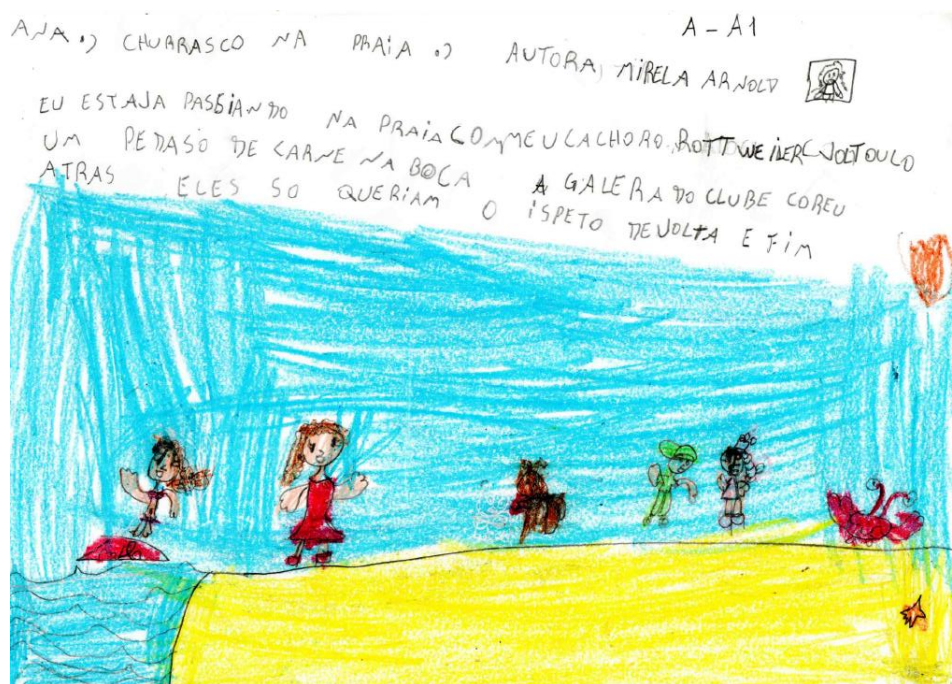 A - A1
ANA :) CHURRASCO NA PRAIA :) AUTORA, MIRELA ARNOLD
EU ESTAVA PASEIANDO NA PRAIA CO MEU CACHORO ROTTWEILER E VOLTOU CO
UM PEDASO DE CARNE NA BOCA A GALERA DO CLUBE COREU
ATRAS ELES SO QUERIAM O ISPETO DEVOLTA E FIM